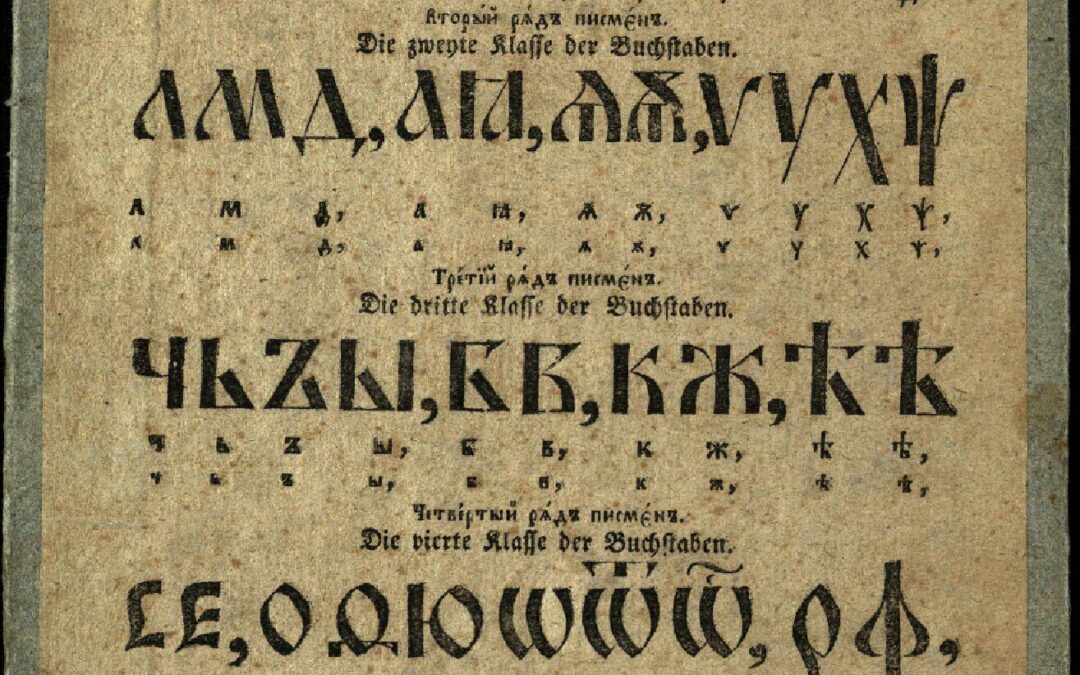 Вторы́й рѧ́дъ писме́нъ.
Die zweyte Klasse der Buchstaben.
Л М Д, А Ꙗ, Ѧ Ѫ, Ѵ У Х Ѱ
л м д, а ꙗ, ѧ ѫ, ѵ у х ѱ,
л м д, а ꙗ, ѧ ѫ, ѵ у х ѱ,
Тре́тїй рѧ́дъ писме́нъ.
Die dritte Klasse der Buchstaben.
Ч Ь Ъ Ы, Б В, К Ж, Ѣ Ѣ
ч ь ъ ы, б в, к ж, ѣ ѣ,
ч ь ъ ы, б в, к ж, ѣ ѣ,
Четве́ртый рѧ́дъ писме́нъ.
Die vierte Klasse der Buchstaben.
Є Е, О Ѻ Ю Ѡ Ѿ Ѽ, Р Ф,